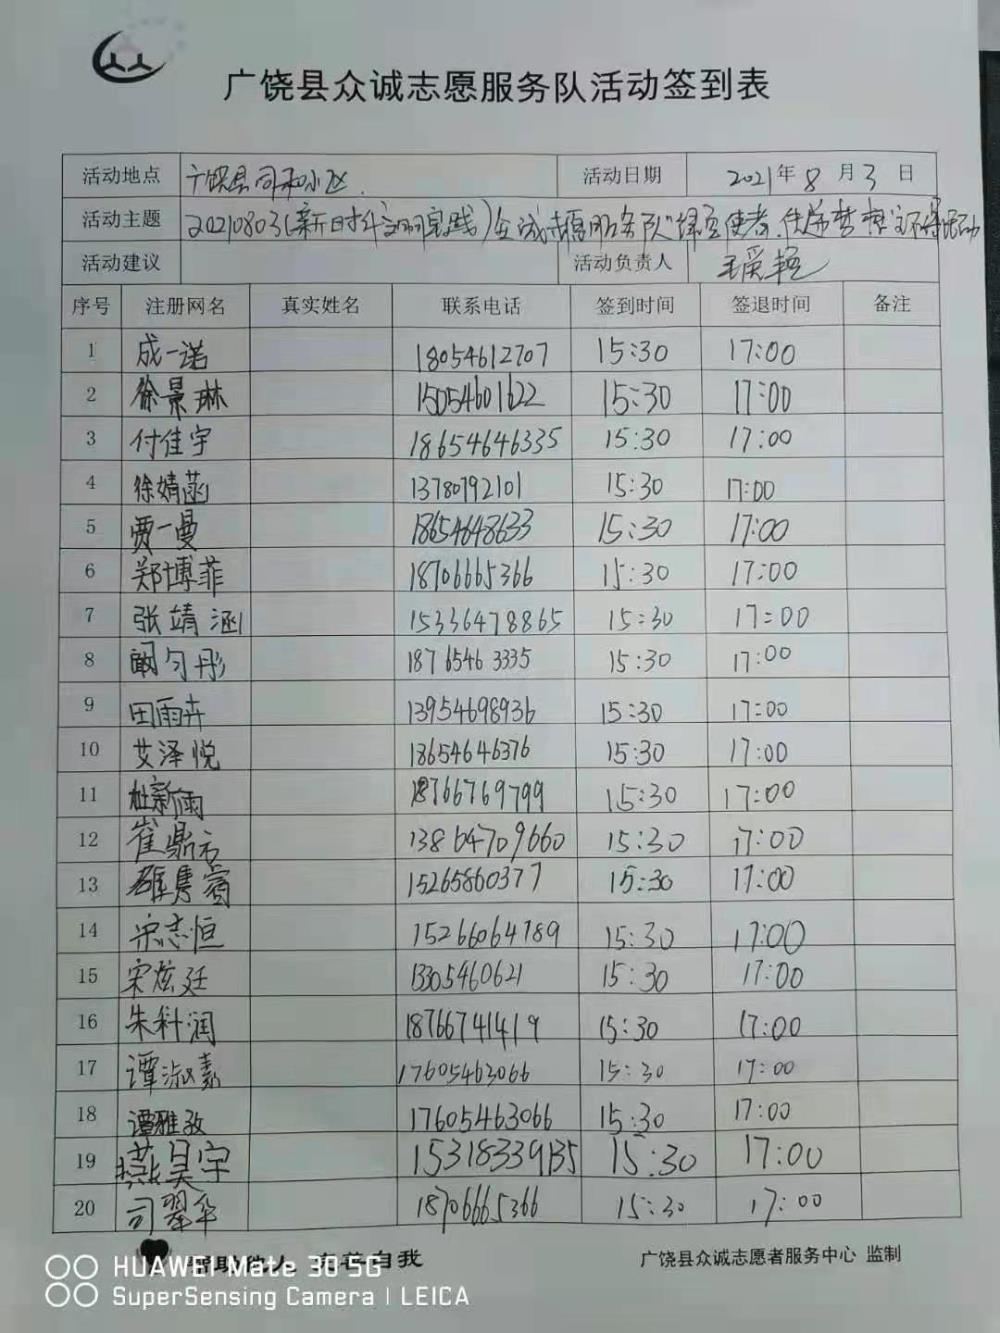 广饶县众诚志愿服务队活动签到表
活动地点 广饶县同和小区. 活动日期 2021年8月3日
活动主题 20210803(新时代文明实践)众诚志愿服务队"绿色使者.
活动建议 活动负责人 王爱艳
序号 注册网名 真实姓名 联系电话 签到时间 签退时间 备注
1 成一诺 18054612707 15:30 17:00
2 徐景琳 15054601622 15:30 17:00
3 付佳宇 18654646335 15:30 17:00
4 徐婧菡 13780792101 15:30 17:00
5 贾一曼 18654648633 15:30 17:00
6 郑博菲 18706665366 15:30 17:00
7 张靖涵 15336478865 15:30 17:00
8 阚匀彤 18765463335 15:30 17:00
9 田雨卉 13954698936 15:30 17:00
10 艾泽悦 18654646376 15:30 17:00
11 杜新雨 18766769799 15:30 17:00
12 崔鼎 13864709660 15:30 17:00
13 15265860377 15:30 17:00
14 宋志恒 15266064789 15:30 17:00
15 宋炫廷 13305460621 15:30 17:00
16 朱科润 18766741419 15:30 17:00
17 谭淑素 17605463066 15:30 17:00
18 谭雅孜 17605463066 15:30 17:00
19 燕昊宇 15318339135 15:30 17:00
20 司翠华 18706665366 15:30 17:00
帮助他人 完善自我 广饶县众诚志愿者服务中心 监制
HUAWEI Mate 30 5G
SuperSensing Camera | LEICA